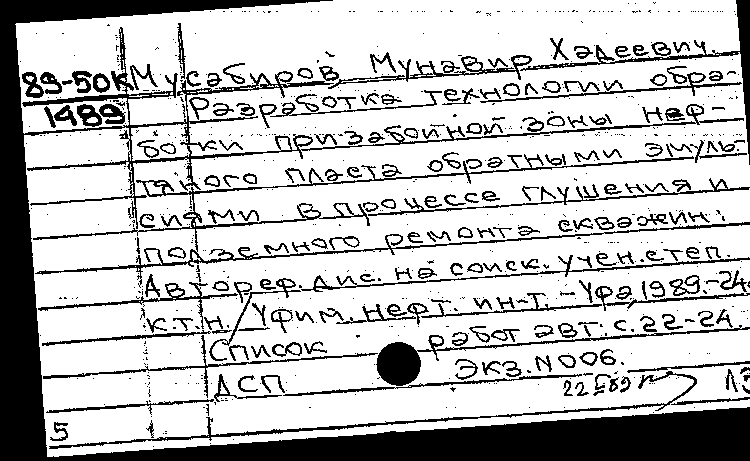 89-50К Мусабиров Мунавир Хадеевич.
1489 Разработка технологии обра-
ботки призабойной зоны неф-
тяного пласта обратными эмуль-
сиями в процессе глушения и
подземного ремонта скважин:
Автореф. дис. на соиск. учен. степ.
к.т.н. Уфим. нефт. ин-т. - Уфа, 1989.-24с.
Список работ авт.: с. 22-24.
ДСП Экз. N 006.
5